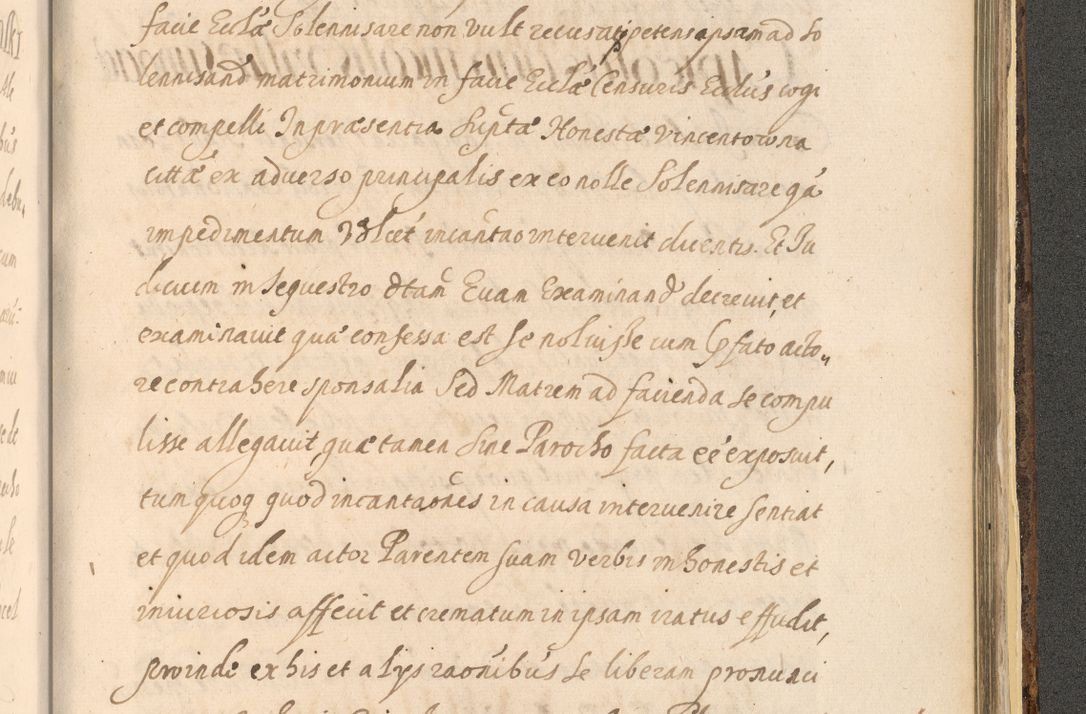 facie Ecclæ Solennisare non vult recusat petens ipsam ad So
lennisand matrimonium in facie Ecclæ Censuris Ecclus cogi
et compelli In præsentia Suptæ Honestæ Vincentowna
cittæ ex adverso principalis ex eo nolle Solennisare qa
impedimentum vdlcet incantao intervenit dicentis. Et Iu
dicium in Sequestro dtam Evam Examinand decrevit, et
examinavit quæ confessa est Se noluisse cum Pfato acto„
re contrahere sponsalia Sed Matrem ad facienda Se compu
lisse allegavit, quæ tamen Sine Parocho facta eé exposuit,
tum quoq quod incantaones in causa intervenire Sentiat
et quod idem actor Parentem Suam Verbis inhonestis et
iniuriosis affecit et crematum in ipsam iratus effudit,
proinde ex his et alys raonibus Se liberam pronunci